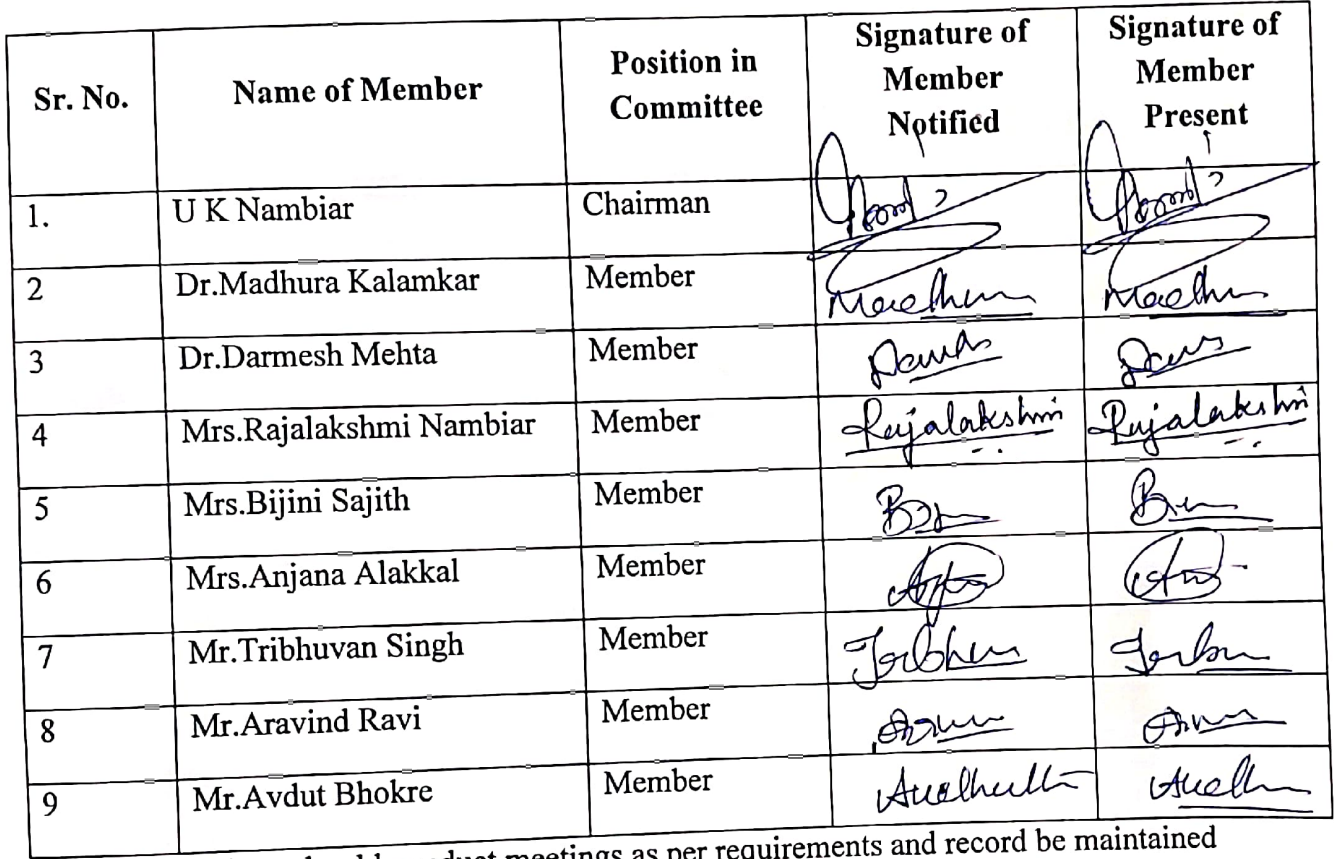 Sr. No. Name of Member Position in Committee Signature of Member Notified Signature of Member Present
1. U K Nambiar Chairman
2 Dr.Madhura Kalamkar Member
3 Dr.Darmesh Mehta Member
4 Mrs.Rajalakshmi Nambiar Member Rajalakshmi Rajalakshmi
5 Mrs.Bijini Sajith Member
6 Mrs.Anjana Alakkal Member
7 Mr.Tribhuvan Singh Member
8 Mr.Aravind Ravi Member
9 Mr.Avdut Bhokre Member
meetings as per requirements and record be maintained